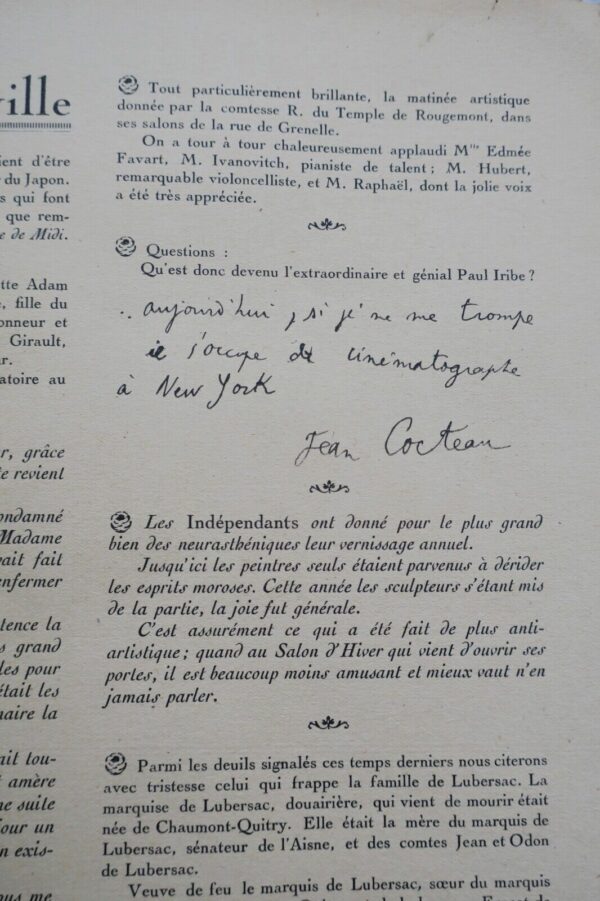 ville
ient d'être
du Japon.
s qui font
que rem-
e de Midi.
tte Adam
e, fille du
onneur et
Girault,
r.
atoire au
r, grâce
te revient
ondamné
Madame
vait fait
enfermer
tence la
s grand
les pour
était les
naire la
ait tou-
t amère
ne suite
jour un
n exis-
ous me
Tout particulièrement brillante, la matinée artistique
donnée par la comtesse R. du Temple de Rougemont, dans
ses salons de la rue de Grenelle.
On a tour à tour chaleureusement applaudi Mlle Edmée
Favart, M. Ivanovitch, pianiste de talent ; M. Hubert,
remarquable violoncelliste, et M. Raphaël, dont la jolie voix
a été très appréciée.
Questions :
Qu'est donc devenu l'extraordinaire et génial Paul Iribe ?
.. aujourd'hui, si je ne me trompe
il s'occupe de cinématographe
à New York
Jean Cocteau
Les Indépendants ont donné pour le plus grand
bien des neurasthéniques leur vernissage annuel.
Jusqu'ici les peintres seuls étaient parvenus à dérider
les esprits moroses. Cette année les sculpteurs s'étant mis
de la partie, la joie fut générale.
C'est assurément ce qui a été fait de plus anti-
artistique ; quand au Salon d'Hiver qui vient d'ouvrir ses
portes, il est beaucoup moins amusant et mieux vaut n'en
jamais parler.
Parmi les deuils signalés ces temps derniers nous citerons
avec tristesse celui qui frappe la famille de Lubersac. La
marquise de Lubersac, douairière, qui vient de mourir était
née de Chaumont-Quitry. Elle était la mère du marquis de
Lubersac, sénateur de l'Aisne, et des comtes Jean et Odon
de Lubersac.
Veuve de feu le marquis de Lubersac, sœur du marquis